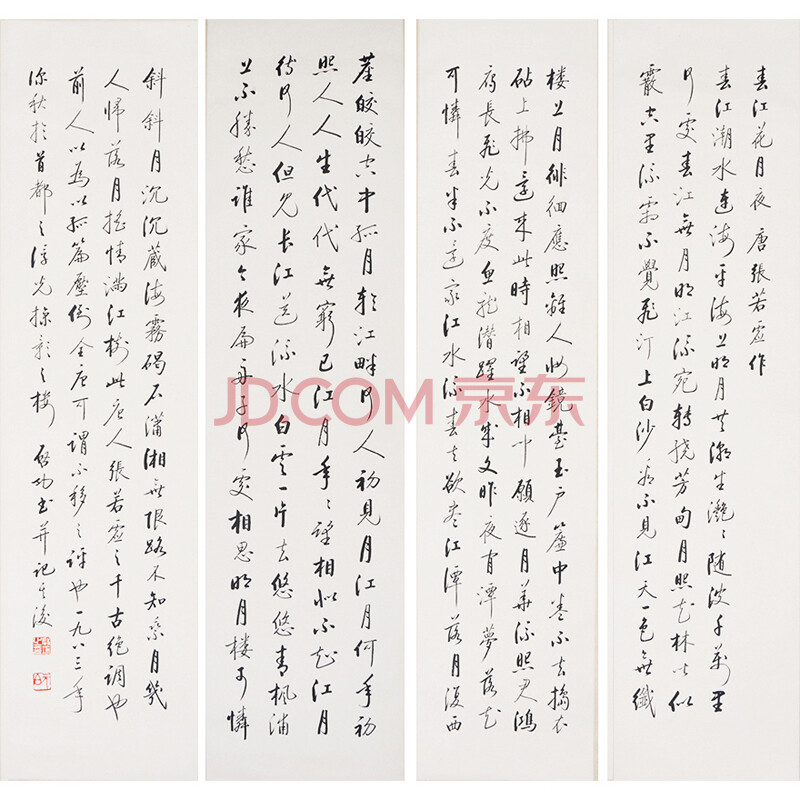 春江花月夜 唐張若虛作
春江潮水連海平海上明月共潮生灩〻隨波千萬里
何處春江無月明江流宛轉繞芳甸月照花林皆似
霰空里流霜不覺飛汀上白沙看不見江天一色無纖
塵皎皎空中孤月輪江畔何人初見月江月何年初
照人人生代代無窮已江月年〻望相似不知江月
待何人但見長江送流水白雲一片去悠悠青楓浦
上不勝愁誰家今夜扁舟子何處相思明月樓可憐
樓上月徘徊應照離人妝鏡臺玉戶簾中卷不去擣衣
砧上拂還來此時相望不相聞願逐月華流照君鴻
雁長飛光不度魚龍潛躍水成文昨夜有潭夢落花
可憐春半不還家江水流春去欲盡江潭落月復西
斜斜月沉沉藏海霧碣石瀟湘無限路不知乘月幾
人歸落月搖情滿江樹此唐人張若虛之千古絕調也
前人以為以孤篇壓倒全唐可謂不移之評也一九八三年
深秋於首都之浮光掠影之樓 啓功書并記
JD.COM 京东